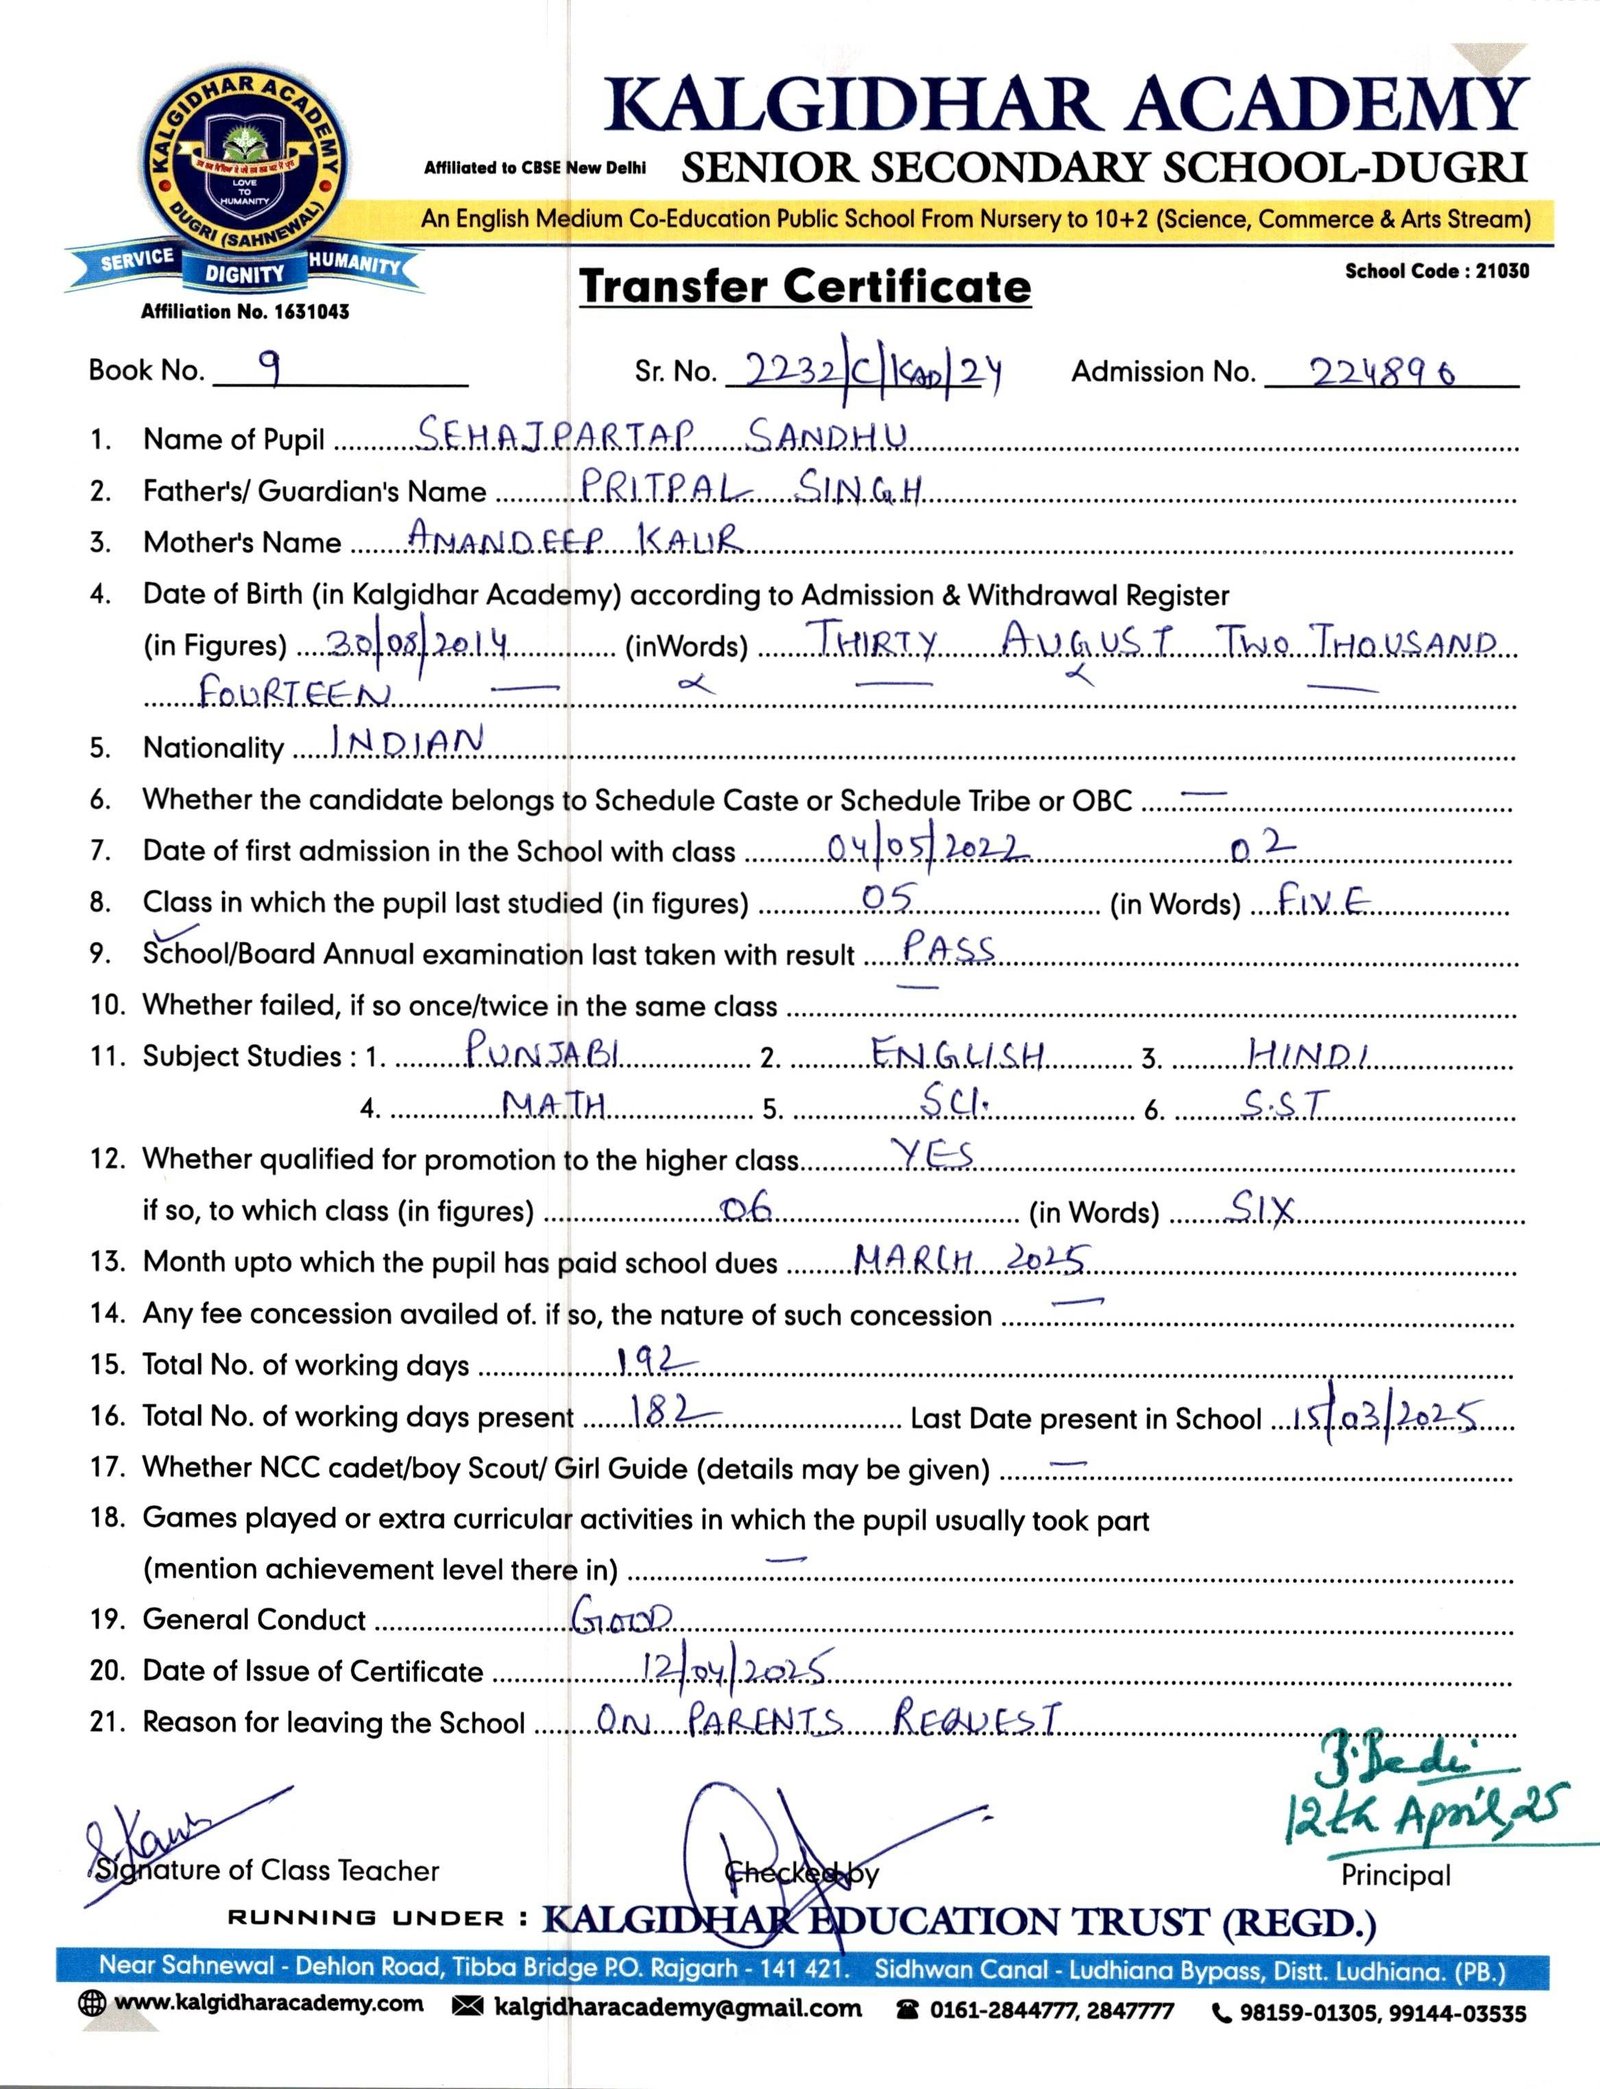 KALGIDHAR ACADEMY
DUGRI (SAHNEWAL)
LOVE
TO
HUMANITY
SERVICE DIGNITY HUMANITY
Affiliation No. 1631043
KALGIDHAR ACADEMY
Affiliated to CBSE New Delhi SENIOR SECONDARY SCHOOL-DUGRI
An English Medium Co-Education Public School From Nursery to 10+2 (Science, Commerce & Arts Stream)
School Code : 21030
Transfer Certificate
Book No. 9 Sr. No. 2232/C/KAD/24 Admission No. 224896
1. Name of Pupil SEHAJPARTAP SANDHU
2. Father's/ Guardian's Name PRITPAL SINGH
3. Mother's Name AMANDEEP KAUR
4. Date of Birth (in Kalgidhar Academy) according to Admission & Withdrawal Register
(in Figures) 30/08/2014 (inWords) THIRTY AUGUST TWO THOUSAND
FOURTEEN —
5. Nationality INDIAN
6. Whether the candidate belongs to Schedule Caste or Schedule Tribe or OBC —
7. Date of first admission in the School with class 04/05/2022 02
8. Class in which the pupil last studied (in figures) 05 (in Words) FIVE
9. School/Board Annual examination last taken with result PASS
10. Whether failed, if so once/twice in the same class —
11. Subject Studies : 1. PUNJABI 2. ENGLISH 3. HINDI
4. MATH 5. SCI. 6. S.ST
12. Whether qualified for promotion to the higher class YES
if so, to which class (in figures) 06 (in Words) SIX
13. Month upto which the pupil has paid school dues MARCH 2025
14. Any fee concession availed of. if so, the nature of such concession —
15. Total No. of working days 192
16. Total No. of working days present 182 Last Date present in School 15/03/2025
17. Whether NCC cadet/boy Scout/ Girl Guide (details may be given) —
18. Games played or extra curricular activities in which the pupil usually took part
(mention achievement level there in) —
19. General Conduct GOOD
20. Date of Issue of Certificate 12/04/2025
21. Reason for leaving the School ON PARENTS REQUEST
B. Bedi
12th April, 25
S. Kaur
Signature of Class Teacher Checked by Principal
RUNNING UNDER : KALGIDHAR EDUCATION TRUST (REGD.)
Near Sahnewal - Dehlon Road, Tibba Bridge P.O. Rajgarh - 141 421. Sidhwan Canal - Ludhiana Bypass, Distt. Ludhiana. (PB.)
www.kalgidharacademy.com kalgidharacademy@gmail.com 0161-2844777, 2847777 98159-01305, 99144-03535